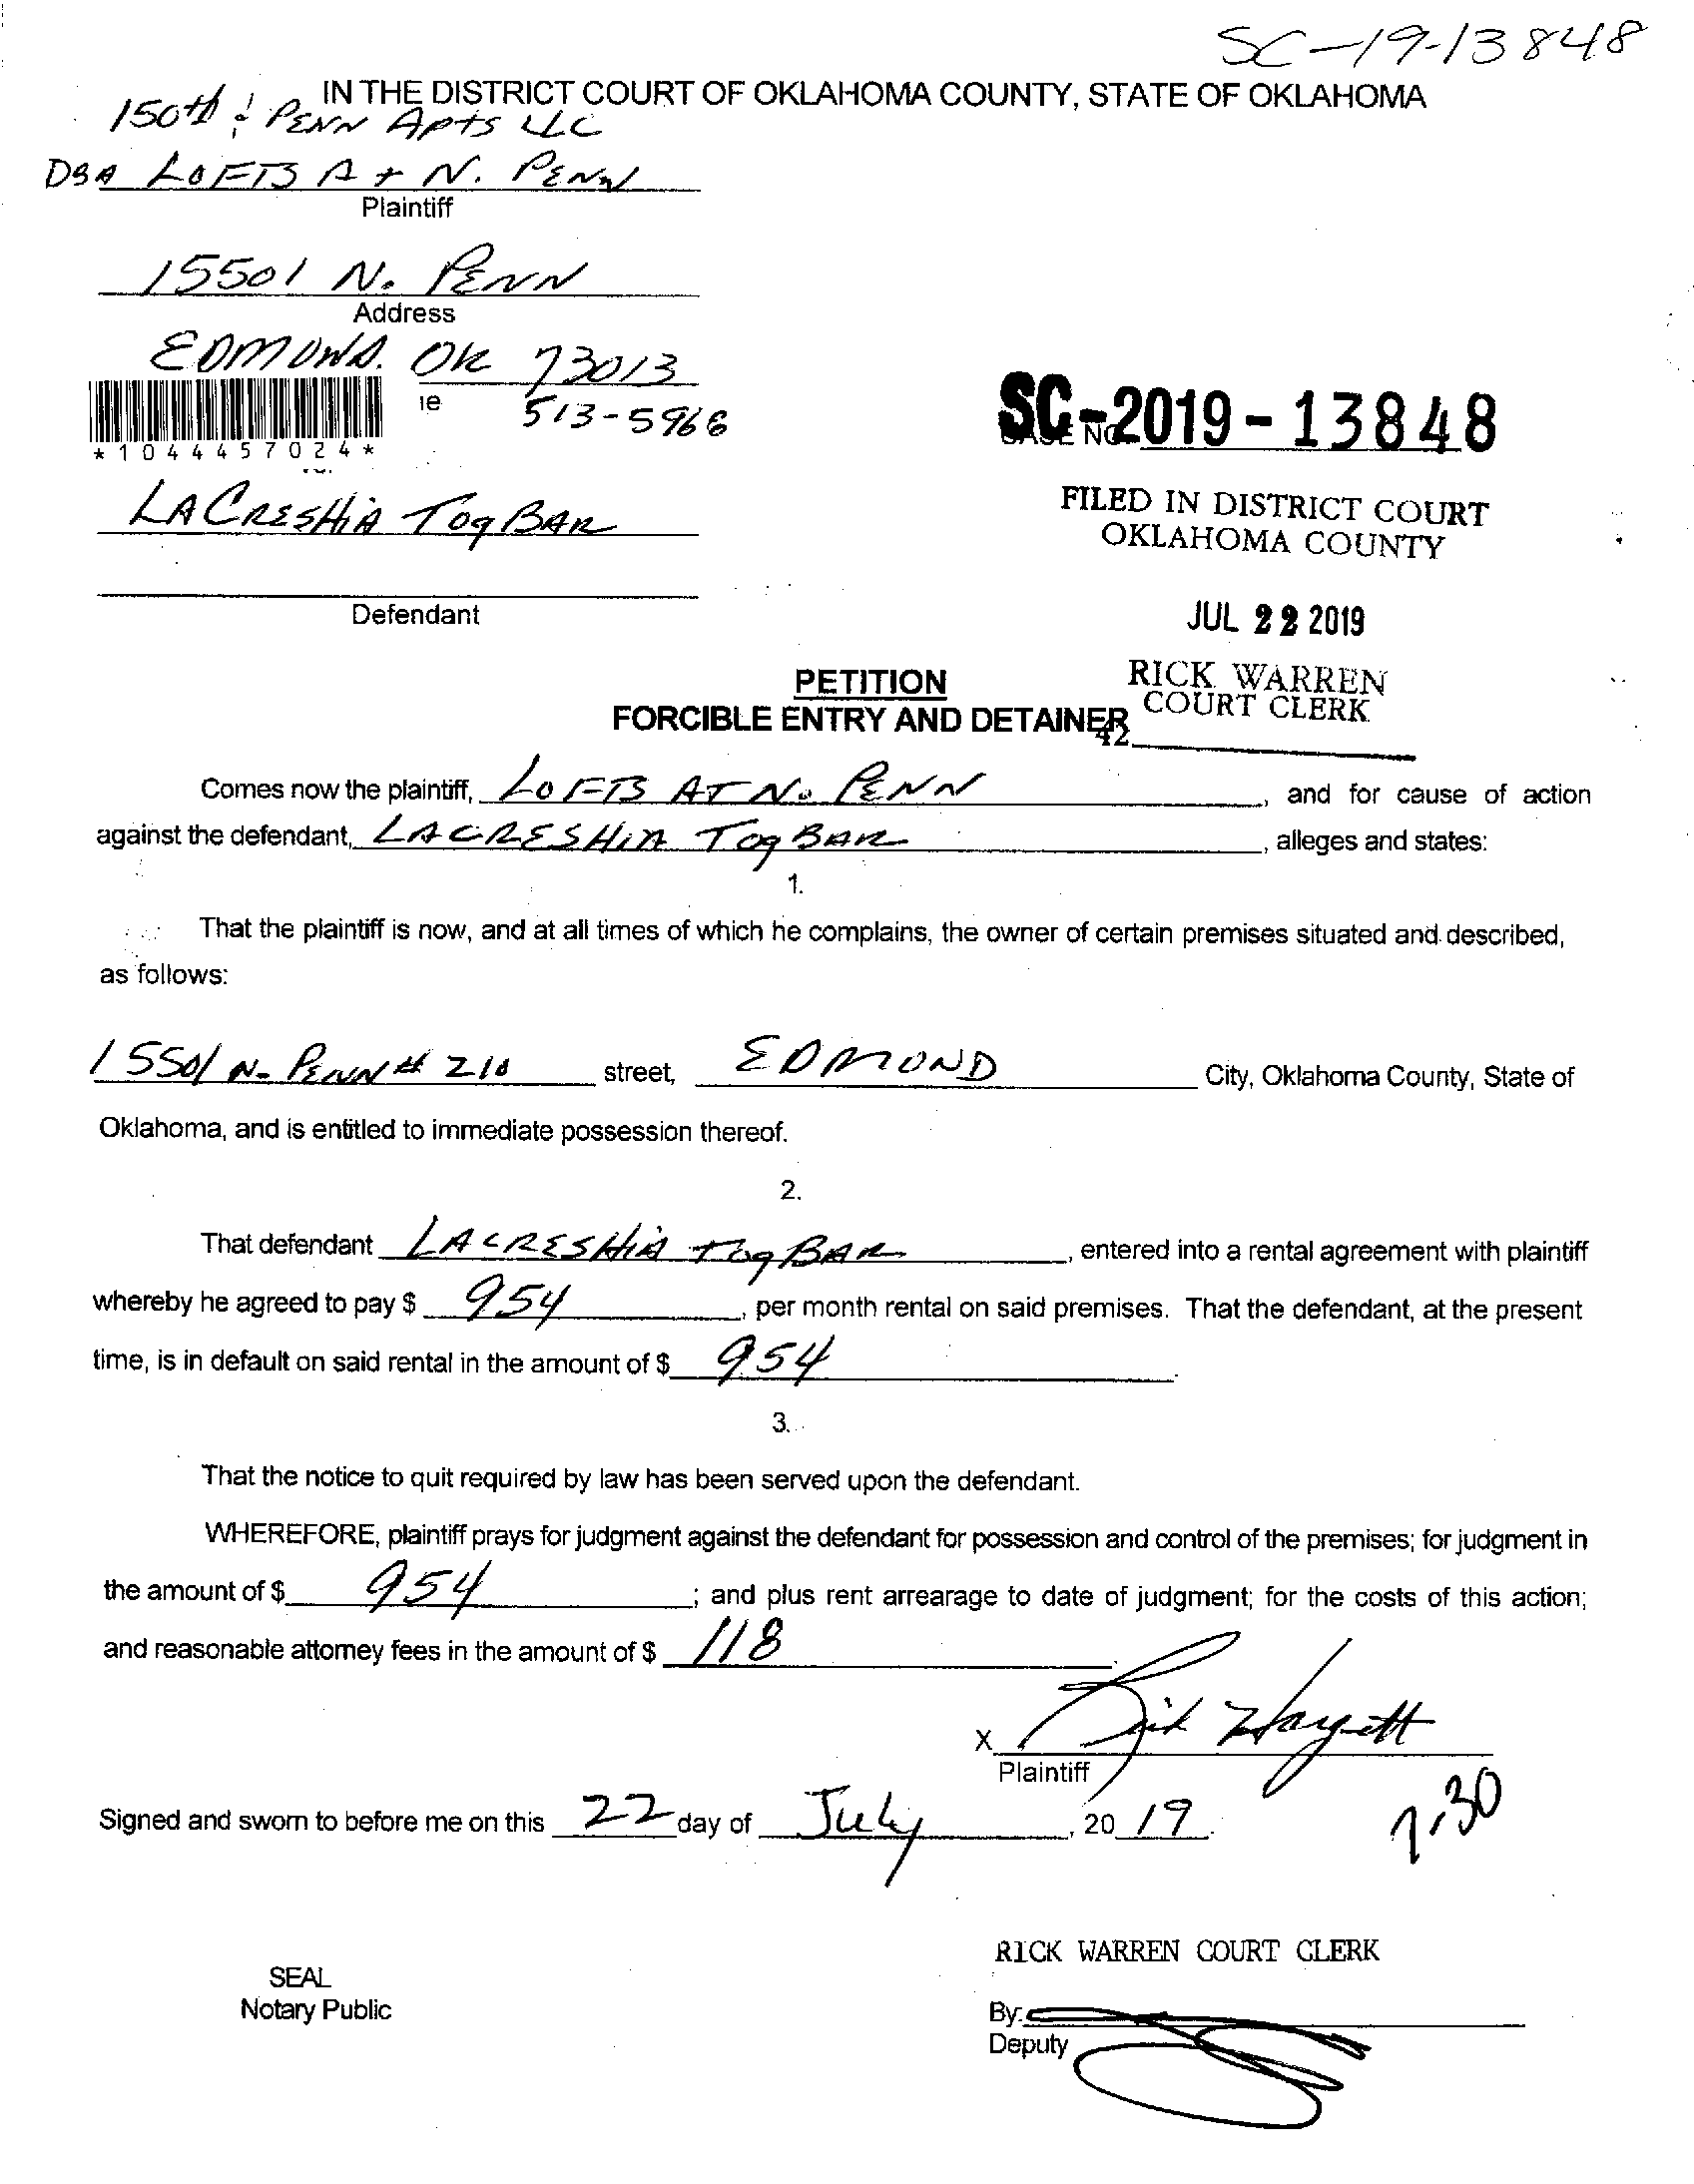 SC-19-13848
IN THE DISTRICT COURT OF OKLAHOMA COUNTY, STATE OF OKLAHOMA
150th & PENN Apts LLC
DBA LOFTS AT N. PENN
Plaintiff
15501 N. PENN
Address
EDMOND. OK 73013
ne
513-5966
*1044457024*
vs.
SC-2019-13848
CASE NO.
LACRESHIA TOqBAR
FILED IN DISTRICT COURT
OKLAHOMA COUNTY
Defendant
JUL 22 2019
PETITION
FORCIBLE ENTRY AND DETAINER
RICK WARREN
COURT CLERK
42
Comes now the plaintiff, LOFTS AT N. PENN, and for cause of action
against the defendant, LACRESHIA TOqBAR, alleges and states:
1.
That the plaintiff is now, and at all times of which he complains, the owner of certain premises situated and described,
as follows:
15501 N. PENN # 210 street, EDMOND City, Oklahoma County, State of
Oklahoma, and is entitled to immediate possession thereof.
2.
That defendant LACRESHIA TOqBAR, entered into a rental agreement with plaintiff
whereby he agreed to pay $ 954, per month rental on said premises. That the defendant, at the present
time, is in default on said rental in the amount of $ 954.
3.
That the notice to quit required by law has been served upon the defendant.
WHEREFORE, plaintiff prays for judgment against the defendant for possession and control of the premises; for judgment in
the amount of $ 954; and plus rent arrearage to date of judgment; for the costs of this action;
and reasonable attorney fees in the amount of $ 118.
X Rick Hargett
Plaintiff
Signed and sworn to before me on this 22 day of July, 20 19.
1:30
RICK WARREN COURT CLERK
SEAL
Notary Public
By:
Deputy